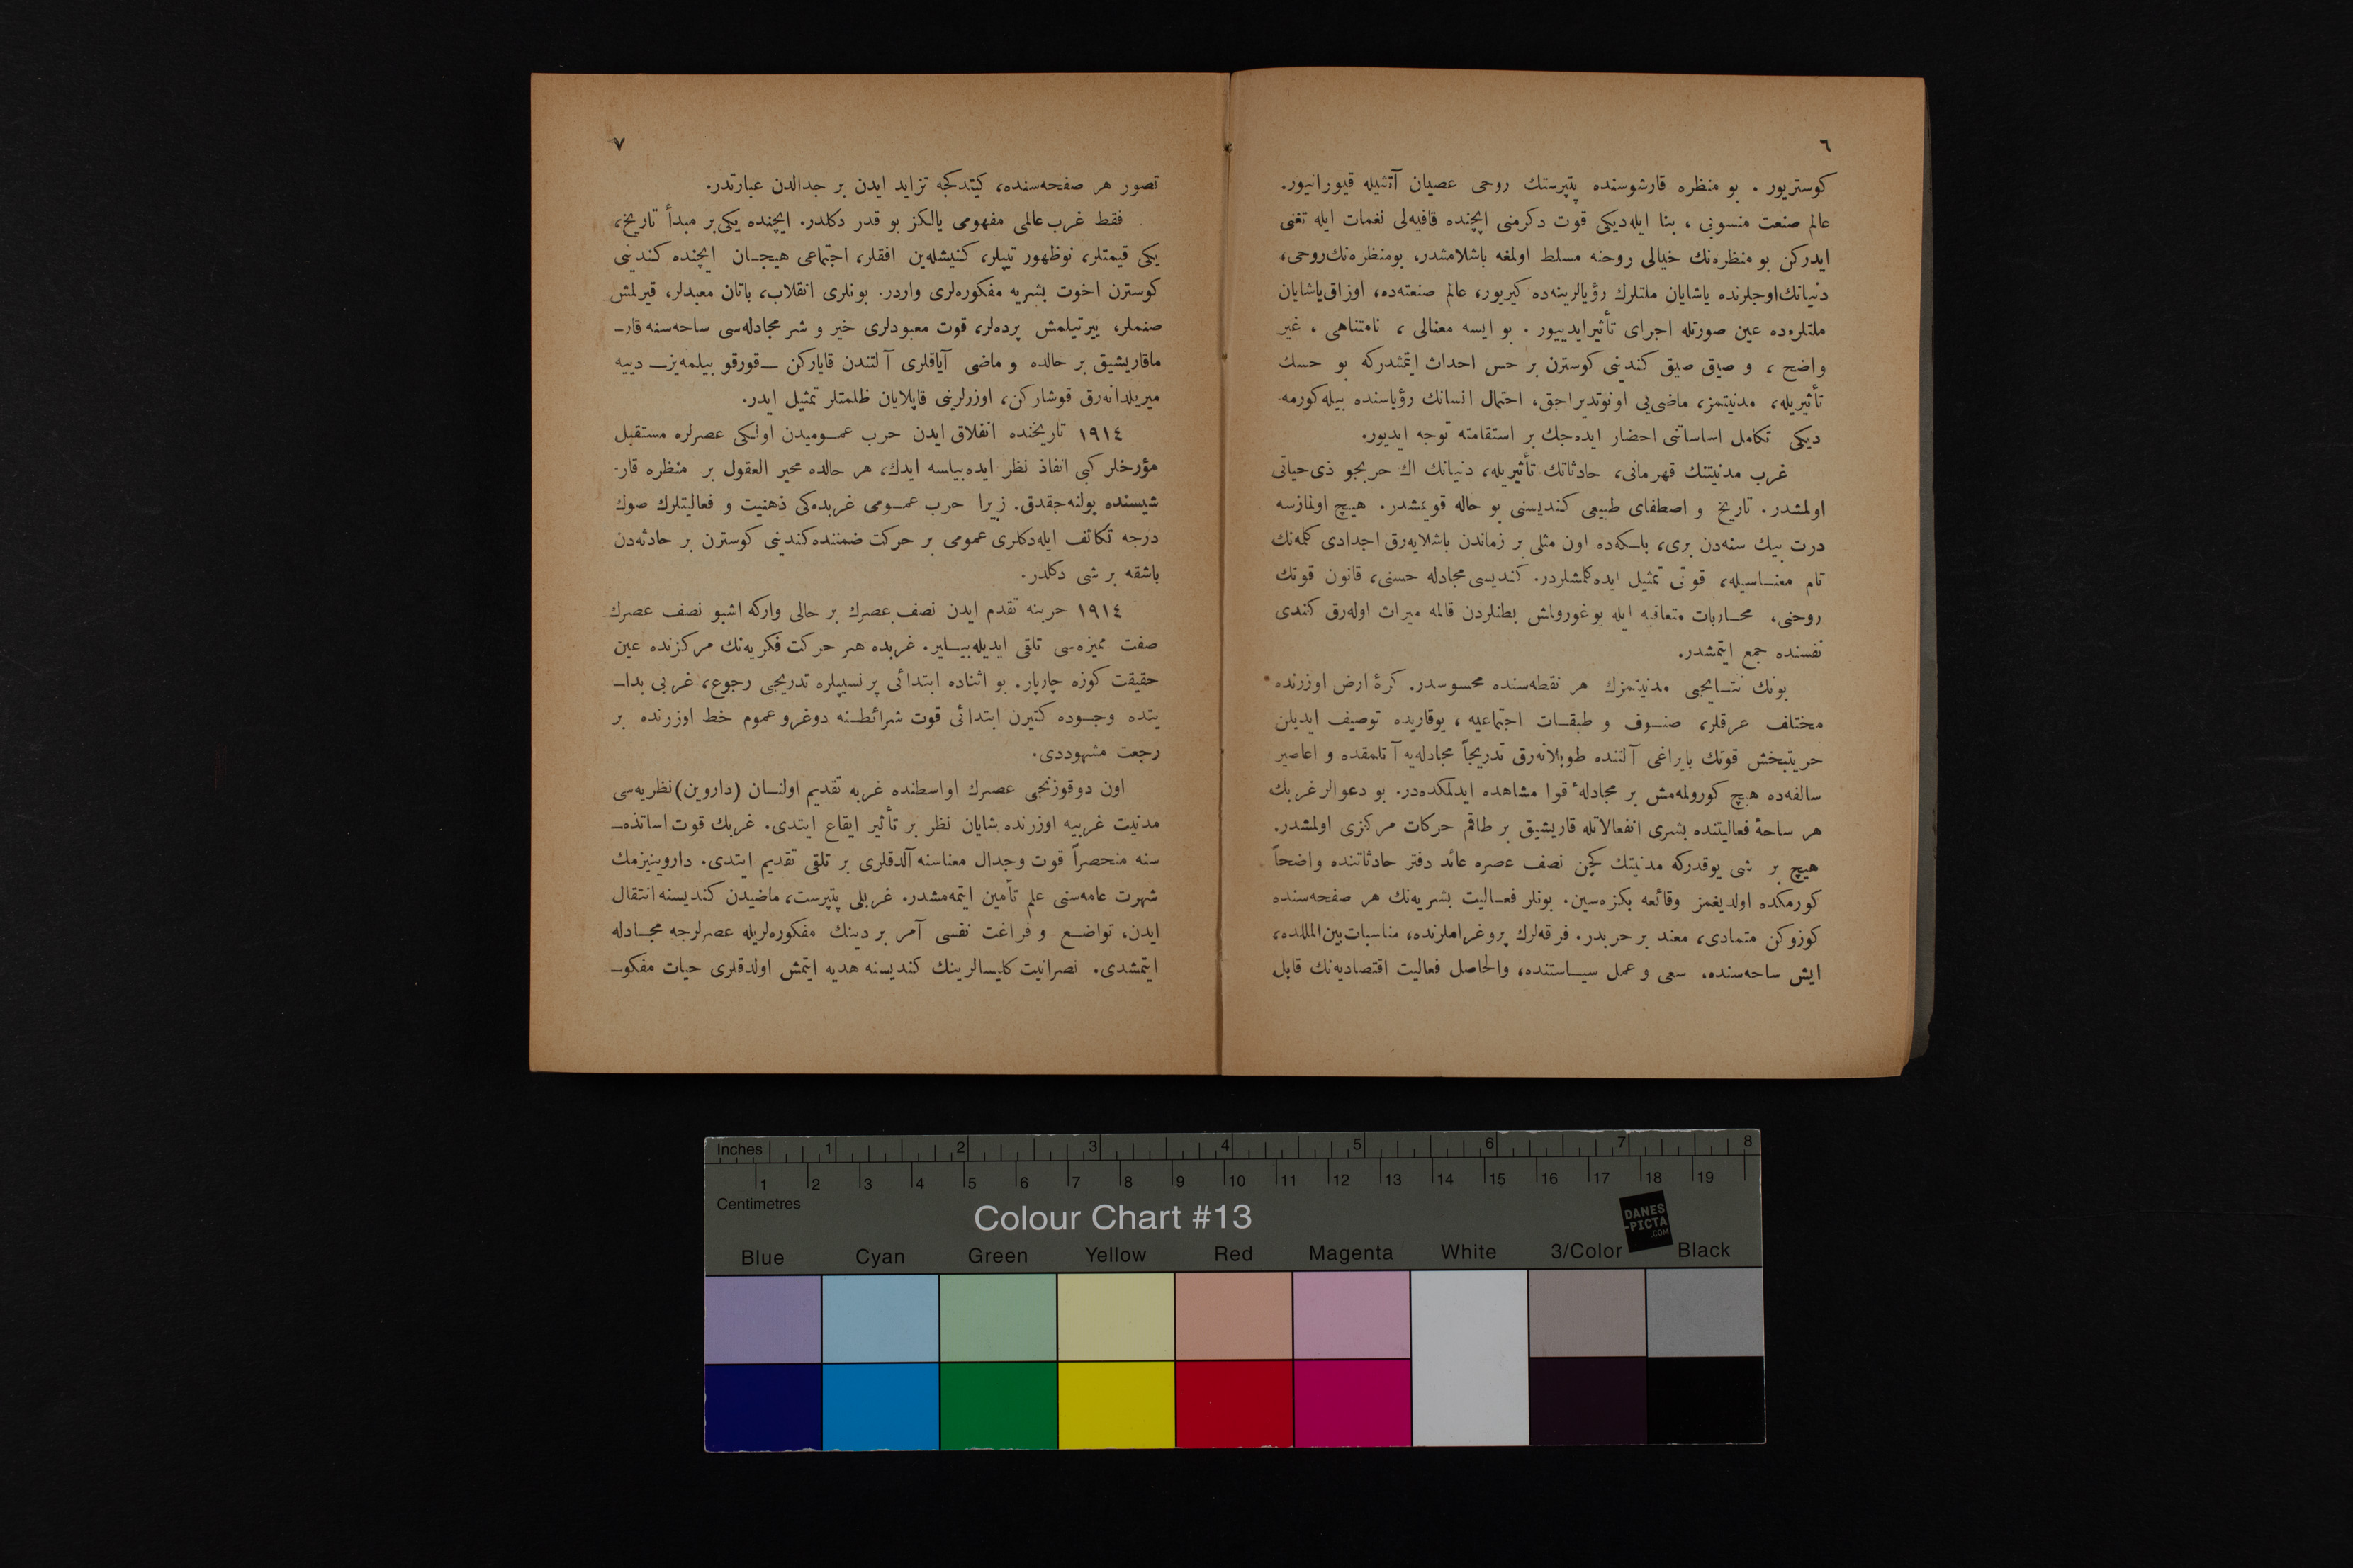 ٦
كوستریور . بو منظره قارشوسنده پتپرستك روحی عصیان آتشیله قیورانیور.
عالم صنعت منسوبی ، بنا ایله‌دیكی قوت دكرمنی ایچنده قافیه‌لی نغمات ایله تغنی
ایدركن بو منظره‌نك خیالی روحنه مسلط اولمغه باشلامشدر، بومنظره‌نك روحی،
دنیانك اوجلرنده یاشایان ملتلرك رؤیالرینه‌ده كیریور، عالم صنعته‌ده، اوزاق یاشایان
ملتلره‌ده عین صورتله اجرای تأثیر ایدییور . بو ایسه معنالی ، نامتناهی ، غیر
واضح ، و صیق صیق كندینی كوسترن بر حس احداث ایتمشدركه بو حسك
تأثیریله، مدنیتمز، ماضی‌یی اونوتدیراجق، احتمال انسانك رؤیاسنده بیله كورمه‌
دیكی تكامل اساساتنی احضار ایده‌جك بر استقامته توجه ایدیور.
غرب مدنیتنك قهرمانی، حادثاتك تأثیریله، دنیانك اك حربجو ذی حیاتی
اولمشدر. تاریخ و اصطفای طبیعی كندیسنی بو حاله قویمشدر. هیچ اولمازسه
درت بیك سنه‌دن بری، باسكه‌ده اون مثلی بر زماندن باشلایه‌رق اجدادی كلمه‌نك
تام معناسیله، قوتی تمثیل ایده كلمشلردر. كندیسی مجادله حسنی، قانون قوتك
روحنی، محاربات متعاقبه ایله یوغورولمش بطنلردن قالمه میراث اوله‌رق كندی
نفسنده جمع ایتمشدر.
بونك نتایجی مدنیتمزك هر نقطه‌سنده محسوسدر. كرۀ ارض اوزرنده
مختلف عرقلر، صنوف و طبقات اجتماعیه ، یوقاریده توصیف ایدیلن
حریتبخش قوتك بایراغی آلتنده طوپلانه‌رق تدریجاً مجادله‌یه آتلمقده و اعاصیر
سالفه‌ده هیچ كورولمه‌مش بر مجادلۀ قوا مشاهده ایدلمكده‌در. بو دعوالر غربك
هر ساحۀ فعالیتنده بشری انفعالاتله قاریشیق بر طاقم حركات مركزی اولمشدر.
هیچ بر شی یوقدركه مدنیتك كچن نصف عصره عائد دفتر حادثاتنده واضحاً
كورمكده اولدیغمز وقائعه بكزه‌سین. بونلر فعالیت بشریه‌نك هر صفحه‌سنده
كوزوكن متمادی، معند بر حربدر. فرقه‌لرك پروغراملرنده، مناسبات بین المللده،
ایش ساحه‌سنده، سعی و عمل سیاستنده، والحاصل فعالیت اقتصادیه‌نك قابل
٧
تصور هر صفحه‌سنده، كیتدكجه تزاید ایدن بر جدالدن عبارتدر.
فقط غرب عالمی مفهومی یالكز بو قدر دكلدر. ایچنده یكی بر مبدأ تاریخ،
یكی قیمتلر، نوظهور تیپلر، كنیشله‌ین افقلر، اجتماعی هیجان ایچنده كندینی
كوسترن اخوت بشریه مفكوره‌لری واردر. بونلری انقلاب، باتان معبدلر، قیرلمش
صنملر، ییرتیلمش پرده‌لر، قوت معبودلری خیر و شر مجادله‌سی ساحه‌سنه قار‌ـ
ماقاریشیق بر حالده و ماضی آیاقلری آلتندن قایاركن ــ قورقو بیلمه‌یز ــ دییه
میریلدانه‌رق قوشاركن، اوزرلرینی قاپلایان ظلمتلر تمثیل ایدر.
١٩١٤ تاریخنده انفلاق ایدن حرب عمومیدن اولكی عصرلره مستقبل
مؤرخلر كبی انفاذ نظر ایده‌بیلسه ایدك، هر حالده محیر العقول بر منظره قار-
شیسنده بولنه‌جقدق. زیرا حرب عمومی غربده‌كی ذهنیت و فعالیتلرك صوك
درجه تكاثف ایله‌دكلری عمومی بر حركت ضمننده كندینی كوسترن بر حادثه‌دن
باشقه بر شی دكلدر.
١٩١٤ حربنه تقدم ایدن نصف عصرك بر حالی واركه اشبو نصف عصرك
صفت ممیزه‌سی تلقی ایدیله‌بیلیر. غربده هر حركت فكریه‌نك مركزنده عین
حقیقت كوزه چارپار. بو اثناده ابتدائی پرنسیپلره تدریجی رجوع، غربی بدا‌ـ
یتده وجوده كتیرن ابتدائی قوت شرائطنه دوغرو عموم خط اوزرنده بر
رجعت مشهوددی.
اون دوقوزنجی عصرك اواسطنده غربه تقدیم اولنان (داروین) نظریه‌سی
مدنیت غربیه اوزرنده شایان نظر بر تأثیر ایقاع ایتدی. غربك قوت اساتذه‌ـ
سنه منحصراً قوت وجدال معناسنه آلدقلری بر تلقی تقدیم ایتدی. داروینیزمك
شهرت عامه‌سنی علم تأمین ایتمه‌مشدر. غربلی پتپرست، ماضیدن كندیسنه انتقال
ایدن، تواضع و فراغت نفسی آمر بر دینك مفكوره‌لریله عصرلرجه مجادله
ایتمشدی. نصرانیت كلیسالرینك كندیسنه هدیه ایتمش اولدقلری حیات مفكو‌ـ
Inches 1 2 3 4 5 6 7 8
1 2 3 4 5 6 7 8 9 10 11 12 13 14 15 16 17 18 19
Centimetres
Colour Chart #13
DANES
-PICTA
.COM
Blue Cyan Green Yellow Red Magenta White 3/Color Black